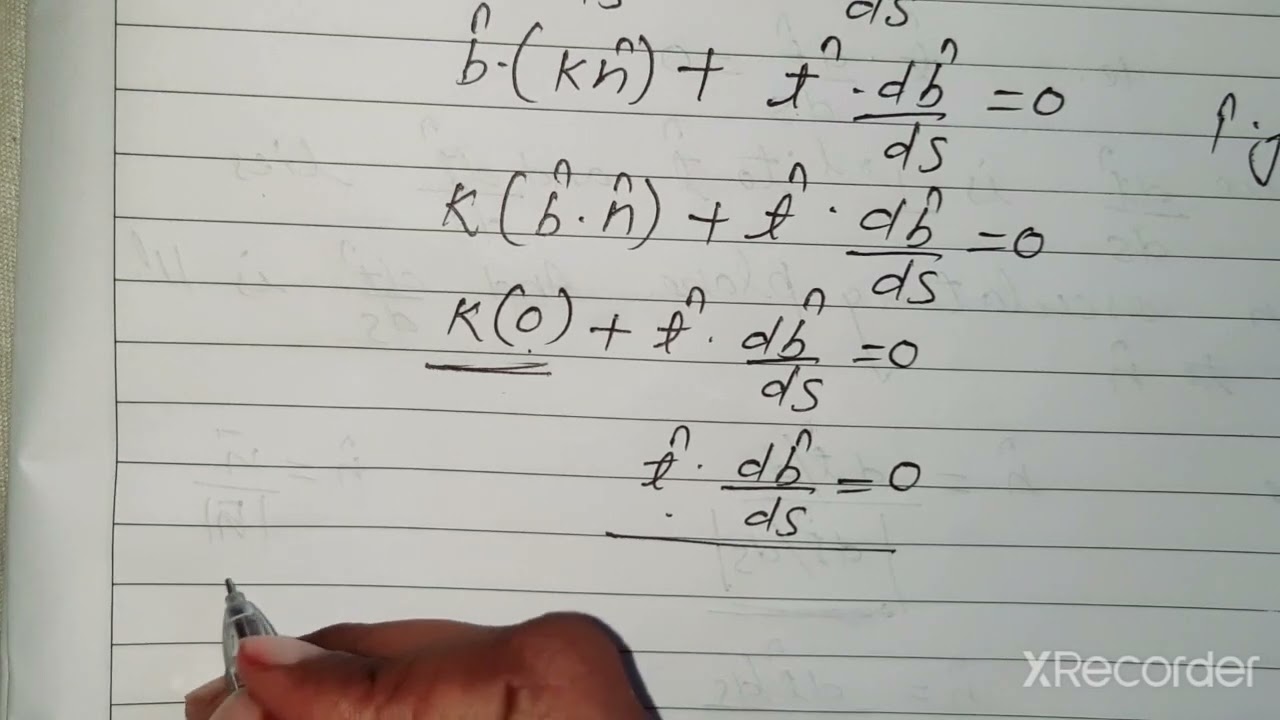 ds
b̂·(kn̂) + t̂ · db̂/ds = 0
k(b̂·n̂) + t̂ · db̂/ds = 0
k(0) + t̂ · db̂/ds = 0
t̂ · db̂/ds = 0
XRecorder